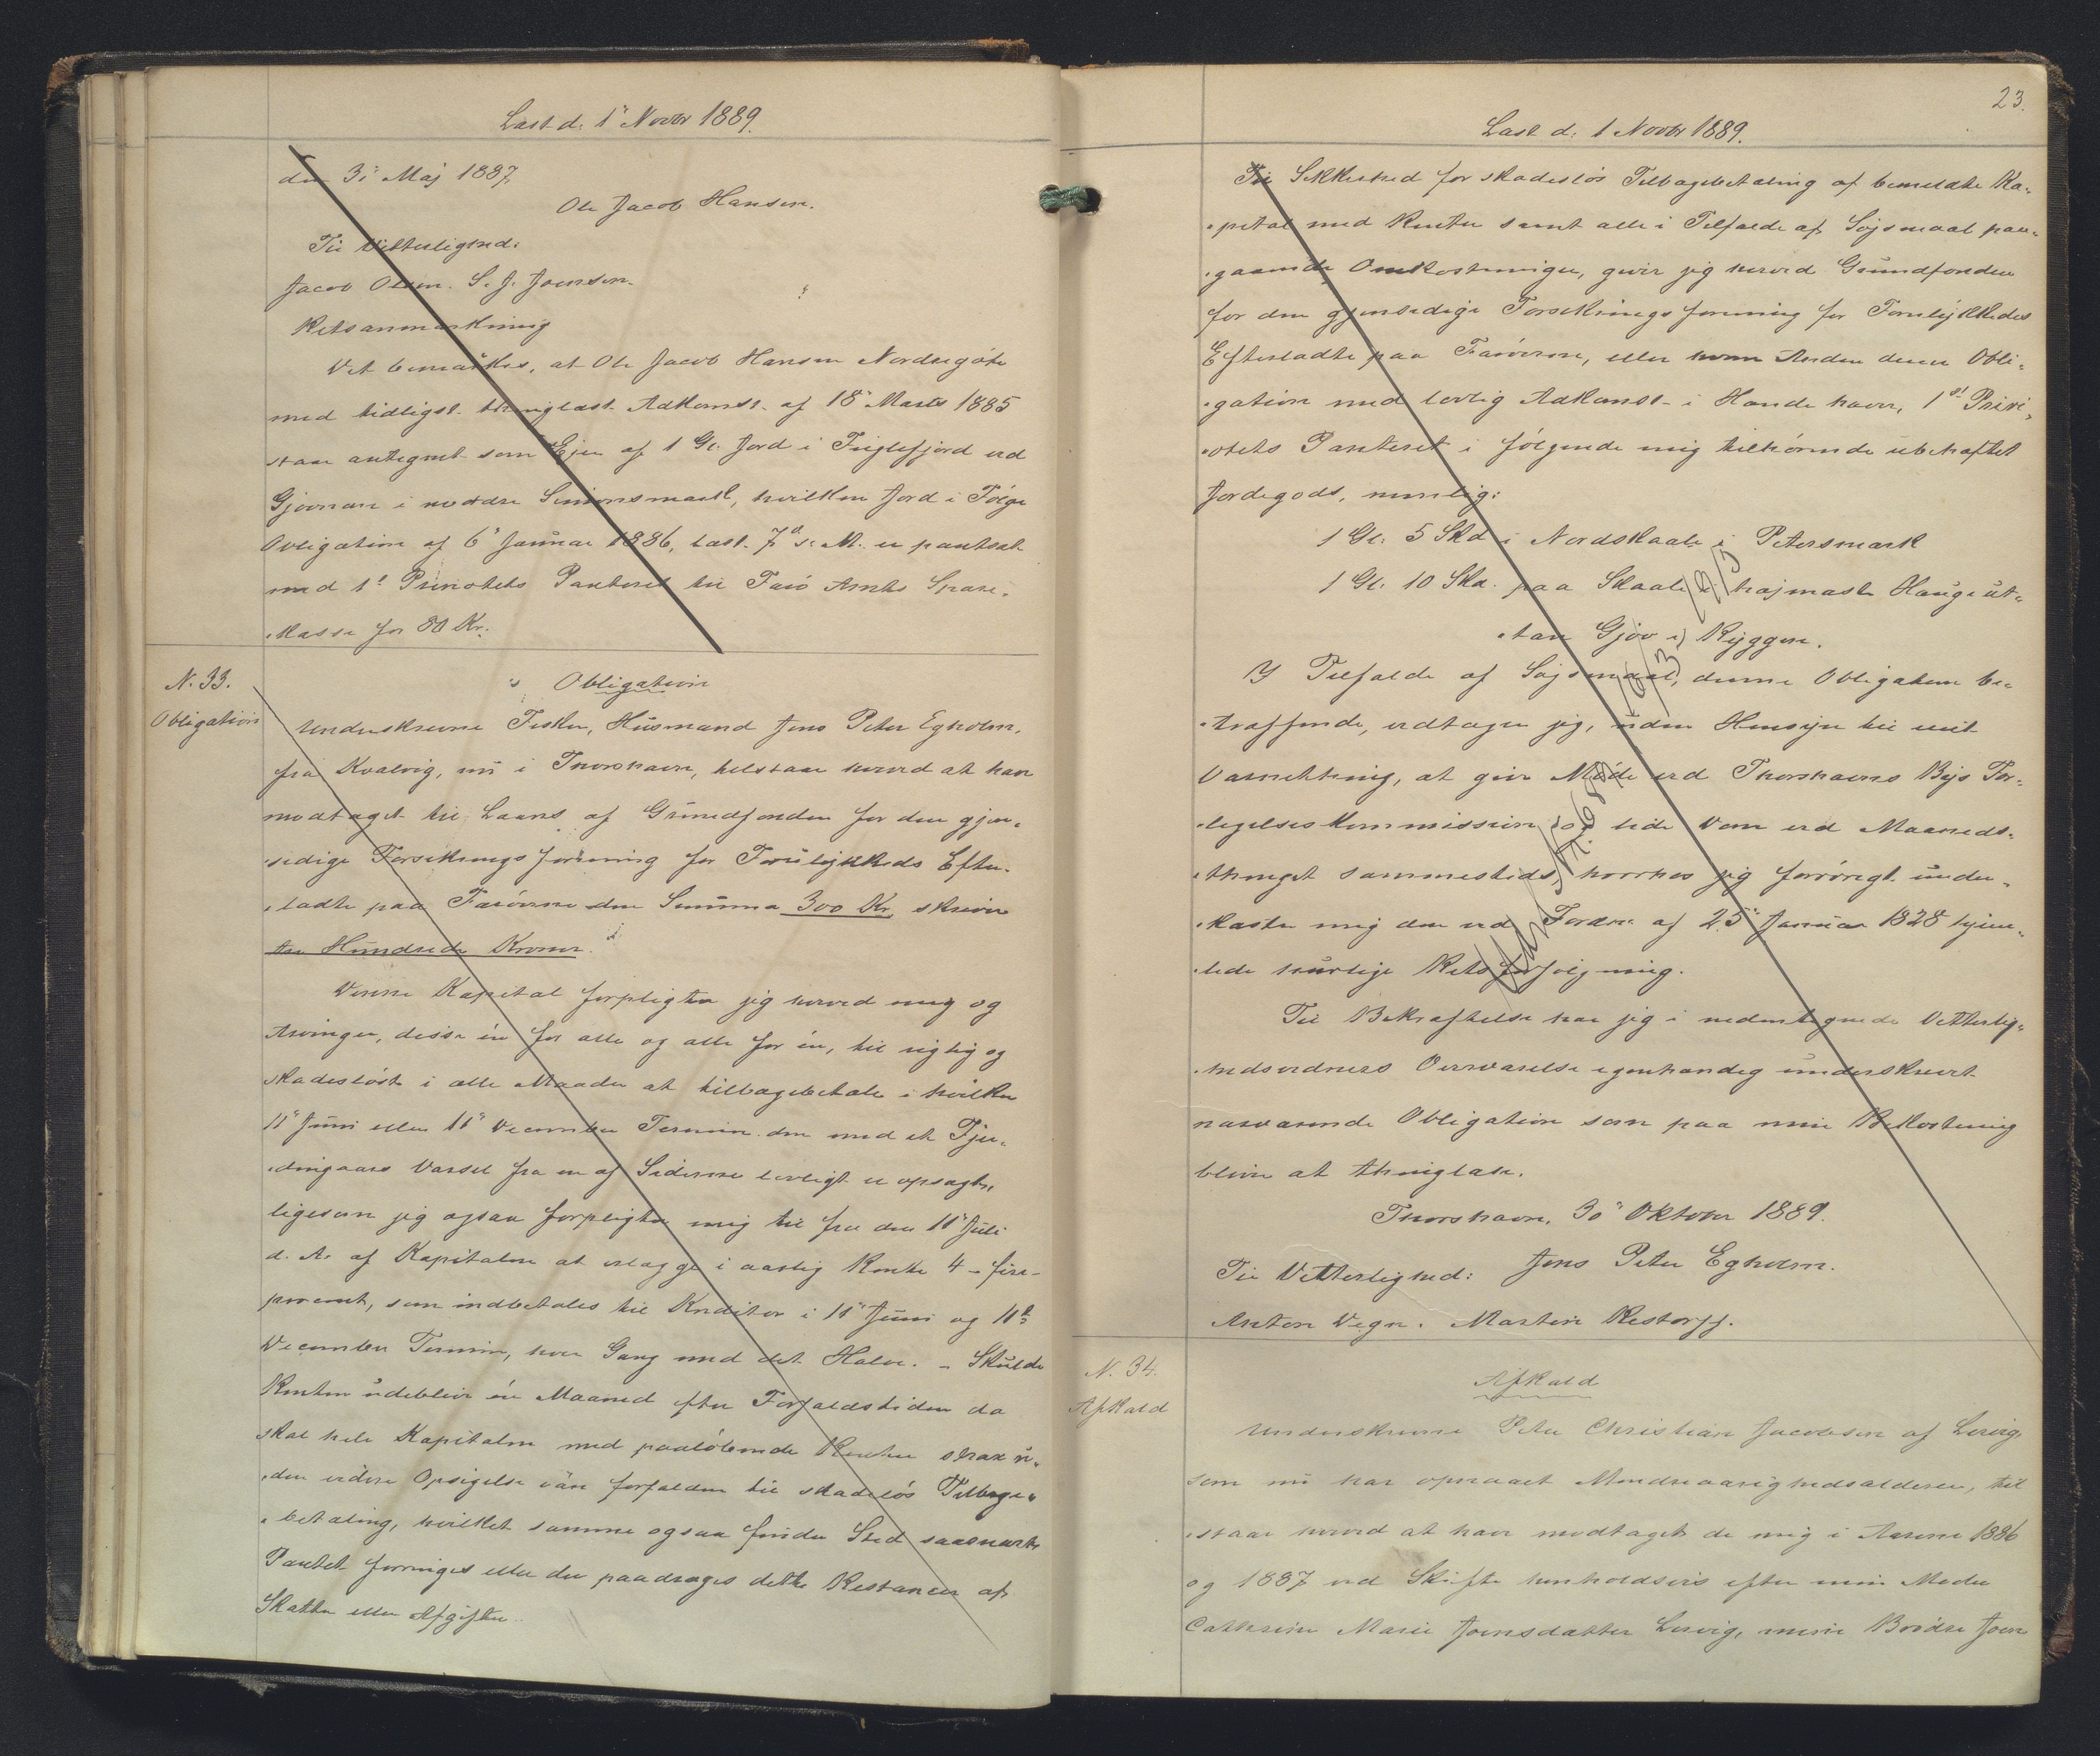 Læst d. 1' Novbr 1889.
den 3i Maj 1887.
Ole Jacob Hansen.
Til Vitterlighed:
Jacob Olsen. S. J. Joensen.
Retsanmærkning
Det bemærkes, at Ole Jacob Hansen Nordregöte
med tidligst thinglæst Adkomst af 18' Marts 1885
staar antegnet som Ejer af 1 Gl. Jord i Fuglefjord ved
Gjovnare i nordre Simonsmark, hvilken Jord i Følge
Obligation af 6' Januar 1886, læst 7' s. M. er pantsat
med 1' Prioritets Panteret til Færö Amts Spare-
kasse for 80 Kr.
N. 33.
Obligation
Obligation
Underskrevne Fisker, Husmand Jens Peter Egholm,
fra Kvalvig, nu i Thorshavn, tilstaar herved at have
modtaget til Laans af Grundfonden for den gjen-
sidige Forsikringsforening for Forulykkedes Efter-
ladte paa Færöerne den Summa 300 Kr, skriver
tre Hundrede Kroner.
Denne Kapital forpligter jeg herved mig og
Arvinger, disse én for alle og alle for én, til rigtig og
skadeslöst i alle Maader at tilbagebetale i hvilken
11' Juni eller 11' December Termin den med et Fjer-
dingaars Varsel fra en af Siderne lovligt er opsagt,
ligesom jeg ogsaa forpligter mig til fra den 11' Juli
d. A. af Kapitalen at erlægge i aarlig Rente 4 - fire -
procent, som indbetales til Kreditor i 11' Juni og 11t
December Termin, hver Gang med det Halve. - Skulde
Renten udeblive én Maaned efter Forfaldstiden da
skal hele Kapitalen med paalöbende Renter strax u-
den videre Opsigelse være forfalden til skadeslös Tilbage-
betaling, hvilket samme ogsaa finder Sted saasnart
Pantet forringes eller der paadrages dette Restancer af
Skatter eller Afgifter.
23.
Læst d. 1 Novbr 1889.
Til Sikkerhed for skadeslös Tilbagebetaling af bemeldte Ka-
pital med Renter samt alle i Tilfælde af Søjsmaal paa-
gaaende Omkostninger, giver jeg herved Grundfonden
for den gjensidige Forsikringsforening for Forulykkedes
Efterladte paa Færöerne, eller hvem Anden denne Obli-
gation med lovlig Adkomst i Hænde haver, 1st Priori-
tets Panteret i følgende mig tilhörende ubehæftet
Jordegods, nemlig:
1 Gl. 5 Skd i Nordskaale i Petersmark
1 Gl. 10 Skd. paa Skaale i Haugeut-
tan Gjov i Ryggen.
I Tilfælde af Søjsmaal, denne Obligation be-
træffende, vedtager jeg, uden Hensyn til mit
Værnething, at give Møde ved Thorshavns Bys For-
ligelseskommission og lide Dom ved Maaneds-
thinget sammesteds, hvorhos jeg forövrigt under-
kaster mig den ved Fordn af 25' Januar 1828 hjem-
lede hurtige Retsforfölgning.
Til Bekræftelse har jeg i nedentegnede Vitterlig-
hedsvidners Overværelse egenhændig underskrevet
nærværende Obligation som paa min Bekostning
bliver at thinglæse.
Thorshavn, 30' Oktober 1889.
Jens Peter Egholm.
Til Vitterlighed:
Anton Degn. Martin Restorff.
N. 34.
Afkald
Afkald
Underskrevne Peter Christian Jacobsen af Lervig,
som nu har opnaaet Mindreaarighedsalderen, til
staar herved at have modtaget de mig i Aarene 1886
og 1887 ved Skifte henholdsvis efter min Moder
Cathrine Marie Joensdatter Lervig, mine Brödre Joen